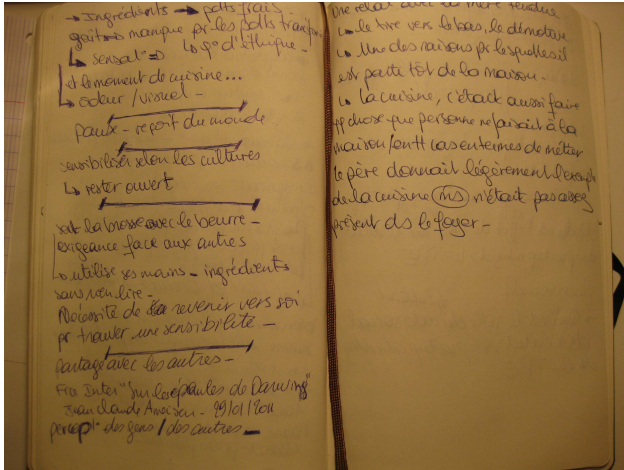 → Ingrédients → pdts frais
goût ⇒ manque pr les pdts transfo
↳ sensat° ⇒ ↳ q° d'éthique -
et le moment de cuisine...
→ odeur / visuel -
paux - reçoit du monde
sensibiliser selon les cultures
↳ rester ouvert
sent la brosse avec le beurre -
exigeance face aux autres
↳ utilise ses mains - ingrédients
sans rien lire -
Nécessité de revenir vers soi
pr trouver une sensibilité -
partage avec les autres -
Fce Inter "Sur les épaules de Darwing"
Jean Claude Ameisen - 29/01/2011
percept° des gens / des autres -
Une relat° avec la mère tendue
↳ le tire vers le bas, le démotive
↳ Une des raisons pr lesquelles il
est partie tôt de la maison -
↳ la cuisine, c'était aussi faire
qq chose que personne ne faisait à la
maison / en termes de métier
le père donnait légèrement l'exemple
de la cuisine (ms) n'était pas assez
présent ds le foyer -